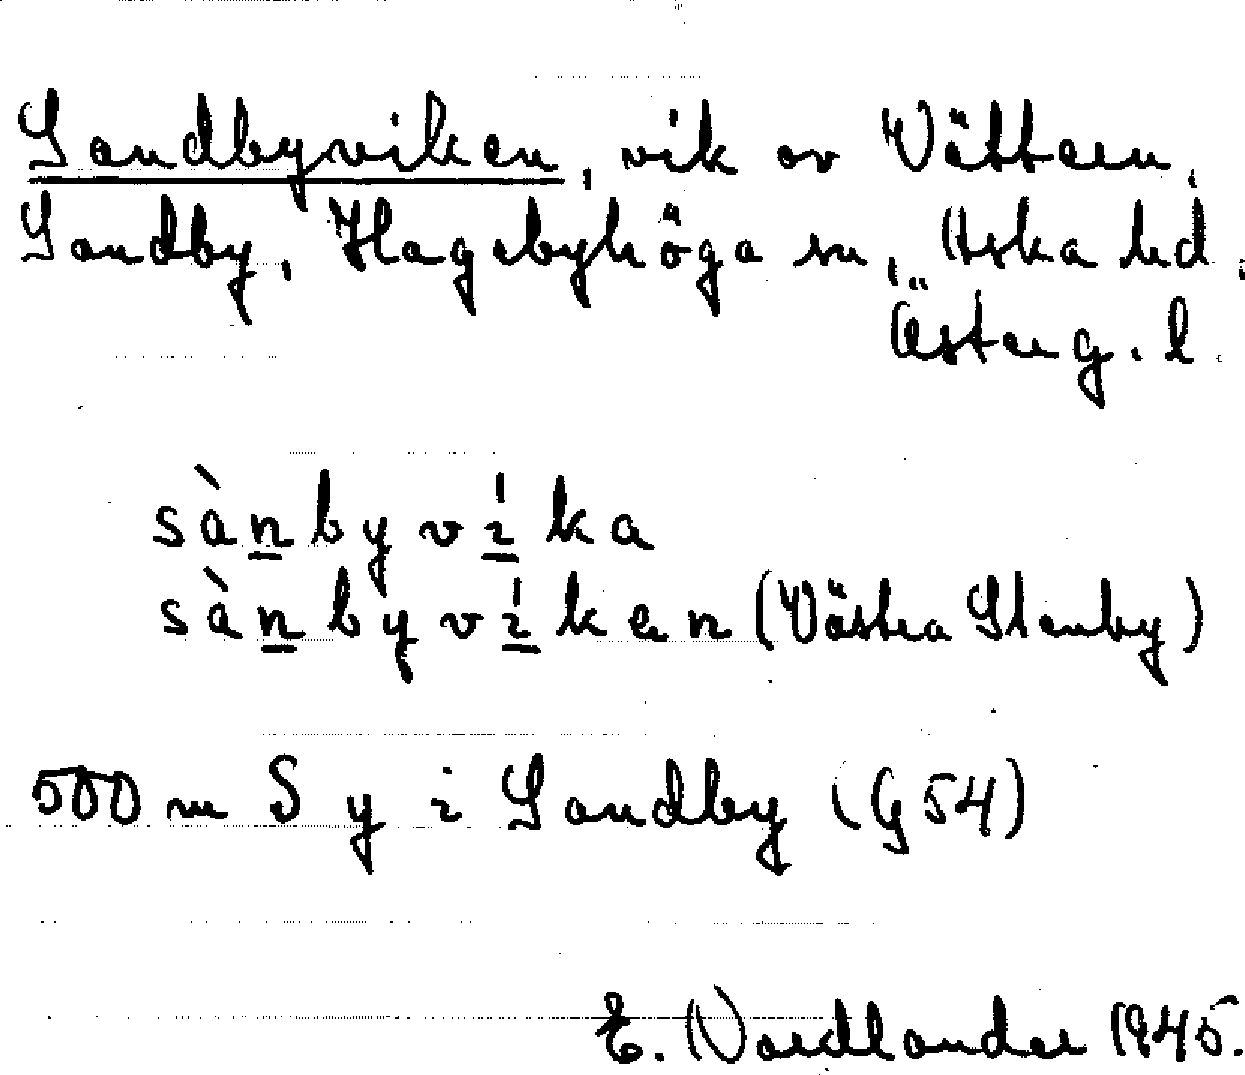 Sandbyviken, vik av Vättern.
Sandby, Hagebyhöga sn, Aska hd,
Österg. l.
sànbyvíka
sànbyvíken (Västra Stenby)
500 m S y i Sandby (G54)
E. Nordlander 1945.